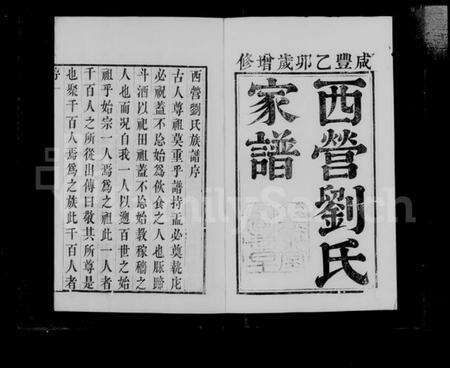 咸豐乙卯歲增修
西營劉氏
家譜
西營劉氏族譜序
古人尊祖莫重乎譜持盂必奠
必祝蓋不忘始為飲食之人也
斗酒以祀田祖蓋不忘始教稼穡之
人也而況自我一人以遡百世之始
祖乎始宗一人焉為之祖此一人者
千百人之所從出傳曰敬其所尊是
也聚千百人焉為之族此千百人者
FamilySearch